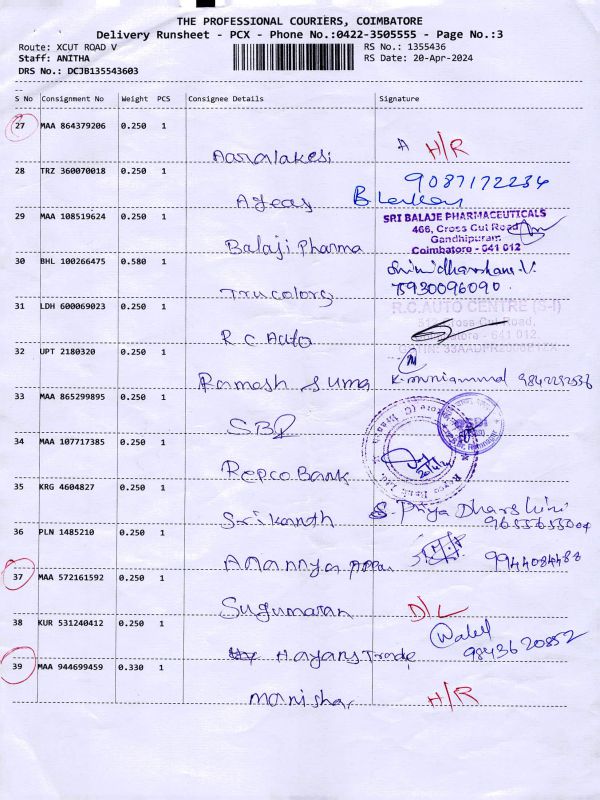 THE PROFESSIONAL COURIERS, COIMBATORE
Delivery Runsheet - PCX - Phone No.:0422-3505555 - Page No.:3
Route: XCUT ROAD V RS No.: 1355436
Staff: ANITHA RS Date: 20-Apr-2024
DRS No.: DCJB135543603
S No Consignment No Weight PCS Consignee Details Signature
27 MAA 864379206 0.250 1
A H/R
28 TRZ 360070018 0.250 1
9087172234
29 MAA 108519624 0.250 1
Balaji Pharma
SRI BALAJE PHARMACEUTICALS
466, Cross Cut Road
Gandhipuram
Coimbatore - 641 012
30 BHL 100266475 0.580 1
Trucolors
8930096090.
31 LDH 600069023 0.250 1
R.C. AUTO CENTRE (S-I)
Cross Cut Road,
641 012
R C Auto
32 UPT 2180320 0.250 1
Ramesh Suma
33 MAA 865299895 0.250 1
SBI
34 MAA 107717385 0.250 1
Repco Bank
35 KRG 4604827 0.250 1
Srikanth S. Priya Dharshini
36 PLN 1485210 0.250 1
9944084488
37 MAA 572161592 0.250 1
Sugumaran D/L
38 KUR 531240412 0.250 1
Hayans Trade 9843620852
39 MAA 944699459 0.330 1
Manishar H/R